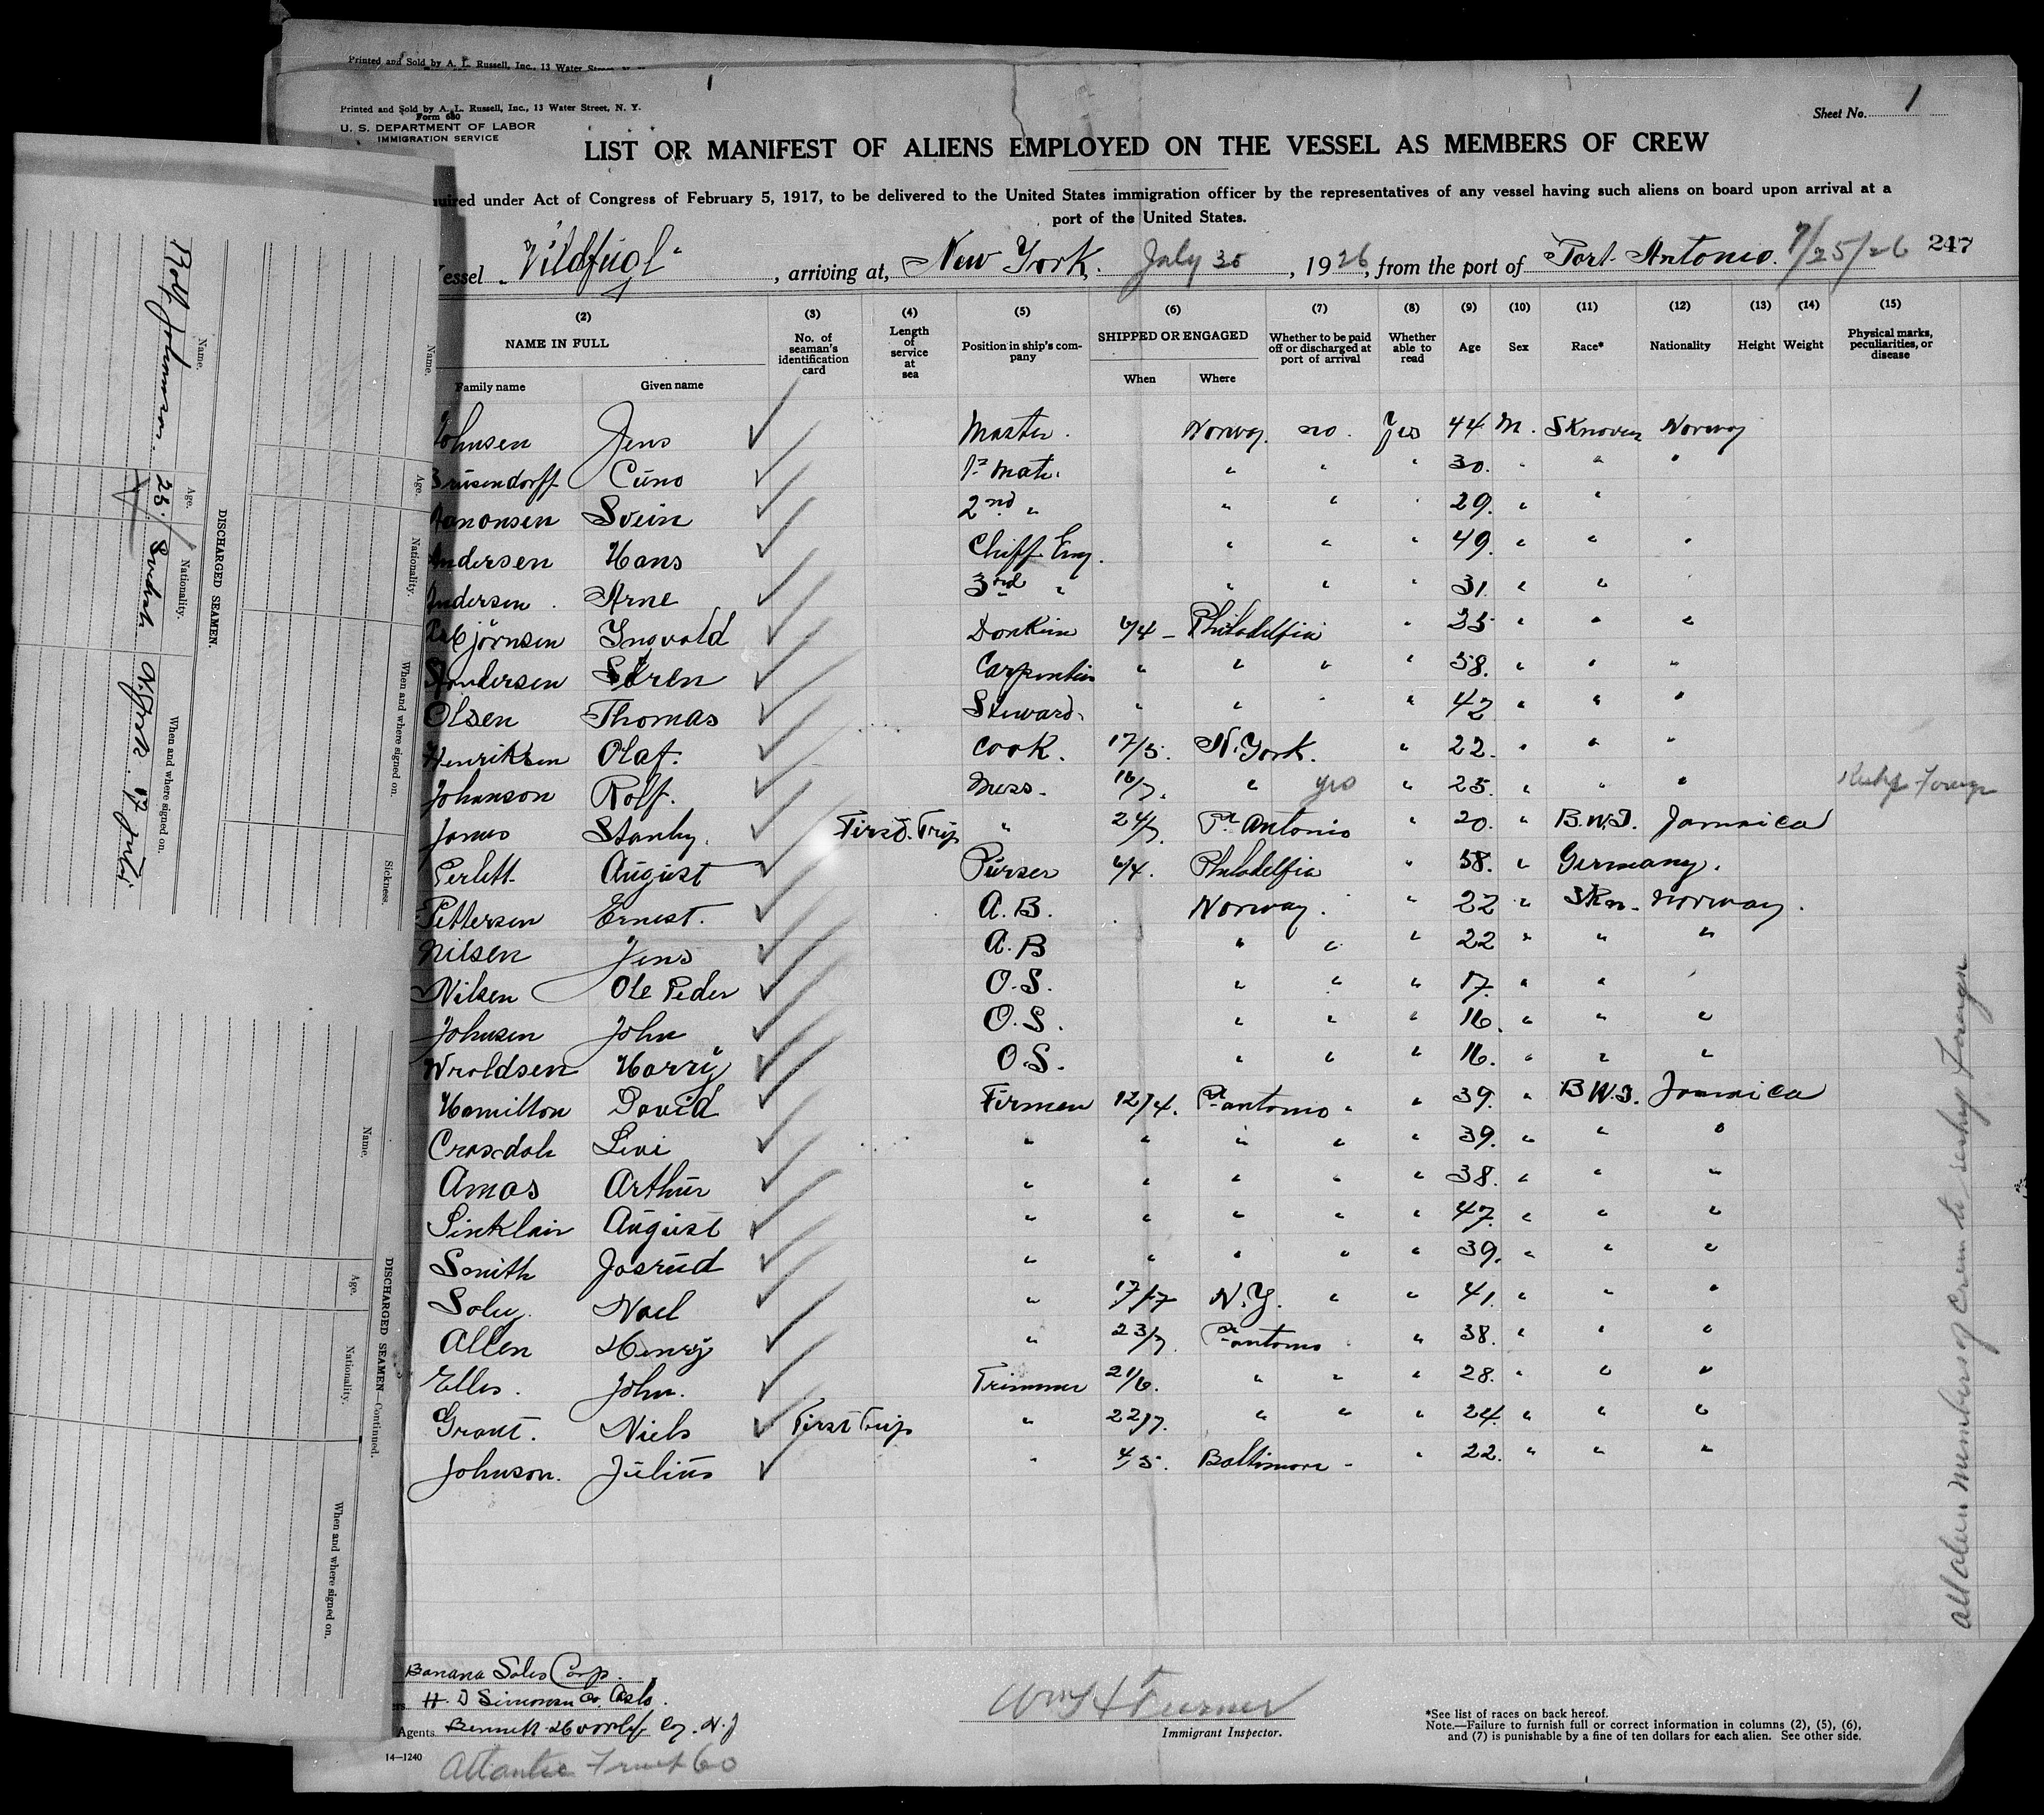 Printed and Sold by A. L. Russell, Inc., 13 Water Street, N. Y.
1
Printed and Sold by A. L. Russell, Inc., 13 Water Street, N. Y.
Form 680
U. S. DEPARTMENT OF LABOR
IMMIGRATION SERVICE
Sheet No. 1
LIST OR MANIFEST OF ALIENS EMPLOYED ON THE VESSEL AS MEMBERS OF CREW
uired under Act of Congress of February 5, 1917, to be delivered to the United States immigration officer by the representatives of any vessel having such aliens on board upon arrival at a
port of the United States.
essel "Vildfugl", arriving at, New York. July 30, 1926, from the port of Port Antonio. 7/25/26 247
(2) (3) (4) (5) (6) (7) (8) (9) (10) (11) (12) (13) (14) (15)
NAME IN FULL No. of seaman's identification card Length of service at sea Position in ship's company SHIPPED OR ENGAGED Whether to be paid off or discharged at port of arrival Whether able to read Age Sex Race* Nationality Height Weight Physical marks, peculiarities, or disease
Family name Given name When Where
Johnsen Jens Master. Norway. no. Yes 44 M. Sknoven Norway
Brusendorff Cuno 1st Mate. " " " 30. " " "
Svein 2nd " " " " 29. " "
Andersen Hans Chiff Eng. " " " 49. " " "
Andersen. Arne 3rd " " " " 31. " "
Asbjörnsen Ingvald Donkim 6/4 - Philadelfia " 35 " " "
Andersen Sören Carpenter " " " " 58. " " "
Olsen Thomas Steward. " " " " 42 " " "
Henriksen Olaf. Cook. 17/5. N. York. " 22. " " "
Johanson Rolf. Mess. 16/7. " yes " 25. " " " Reship Foreign
James Stanly. First. Trip " 24/7. Pt Antonio " 20. " B.W.I. Jamaica
Perlett August Purser 6/4. Philadelfia " 58. " Germany.
Pettersen Ernest. A. B. Norway. " 22 " Skn. Norway.
Nilsen Jens A. B " " " 22 " " "
Nilsen Ole Peder O. S. " " " 17. " "
Johnsen John O. S. " " " 16. " " "
Wroldsen Harry O. S. " " " 16. " " "
Hamilton David Firmen 12/4. Pt antonio " " 39. " B W.I. Jamaica
Crosdale Levi " " " " " 39. " " "
Amos Arthur " " " " " 38. " " "
Sinklair August " " " " " 47. " " "
Smith Josrud " " " " " 39. " " "
Soley. Noel " 17/7 N. Y. " " 41. " " "
Allen Henry " 23/7 Pt antonio " 38. " " "
Elles. John. Trimmer 21/6. " " " 28. " " "
Grant. Niels First Trip " 22/7. " " " 24. " " "
Johnson. Julius " 4/5. Baltimore - " 22. " " "
All alien members of crew to reship Foreign
Banana Sales Corp.
ers H. D Simonsen Co. Oslo.
Agents Bennett Co. N. Y
14—1240
Atlantic Fruit Co
Wm H Turner
Immigrant Inspector.
*See list of races on back hereof.
Note.—Failure to furnish full or correct information in columns (2), (5), (6),
and (7) is punishable by a fine of ten dollars for each alien. See other side.
DISCHARGED SEAMEN.
Name. Age. Nationality. When and where signed on.
Rolf Johannson. 25. N. York. 17
Name. Age. Nationality. When and where signed on. Sickness.
DISCHARGED SEAMEN—Continued.
Name. Age. Nationality. When and where signed on.